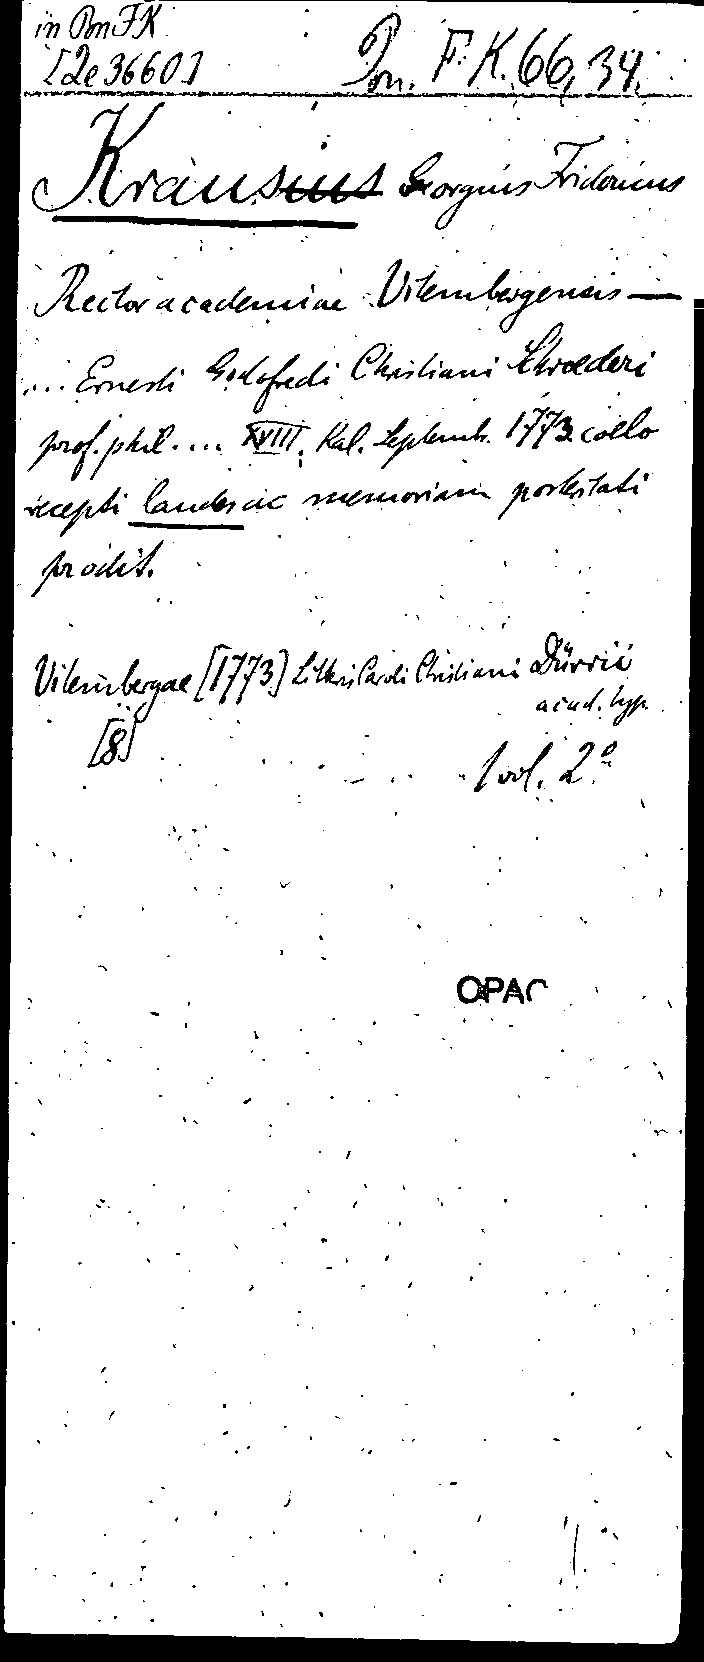 in Pon FK
[2e 3660]
Pon. F. K. 66, 34.
Krausius Georgius Fridericus
Rector academiae Vitembergensis —
... Ernesti Godofredi Christiani Schroederi
prof. phil. ... XVIII. Kal. Septemb. 1773. coelo
recepti laudes ac memoriam posteritati
prodit.
Vitembergae [1773] Litteris Caroli Christiani Dürrii
acad. typ.
[8]
1 vol. 2°
OPAC